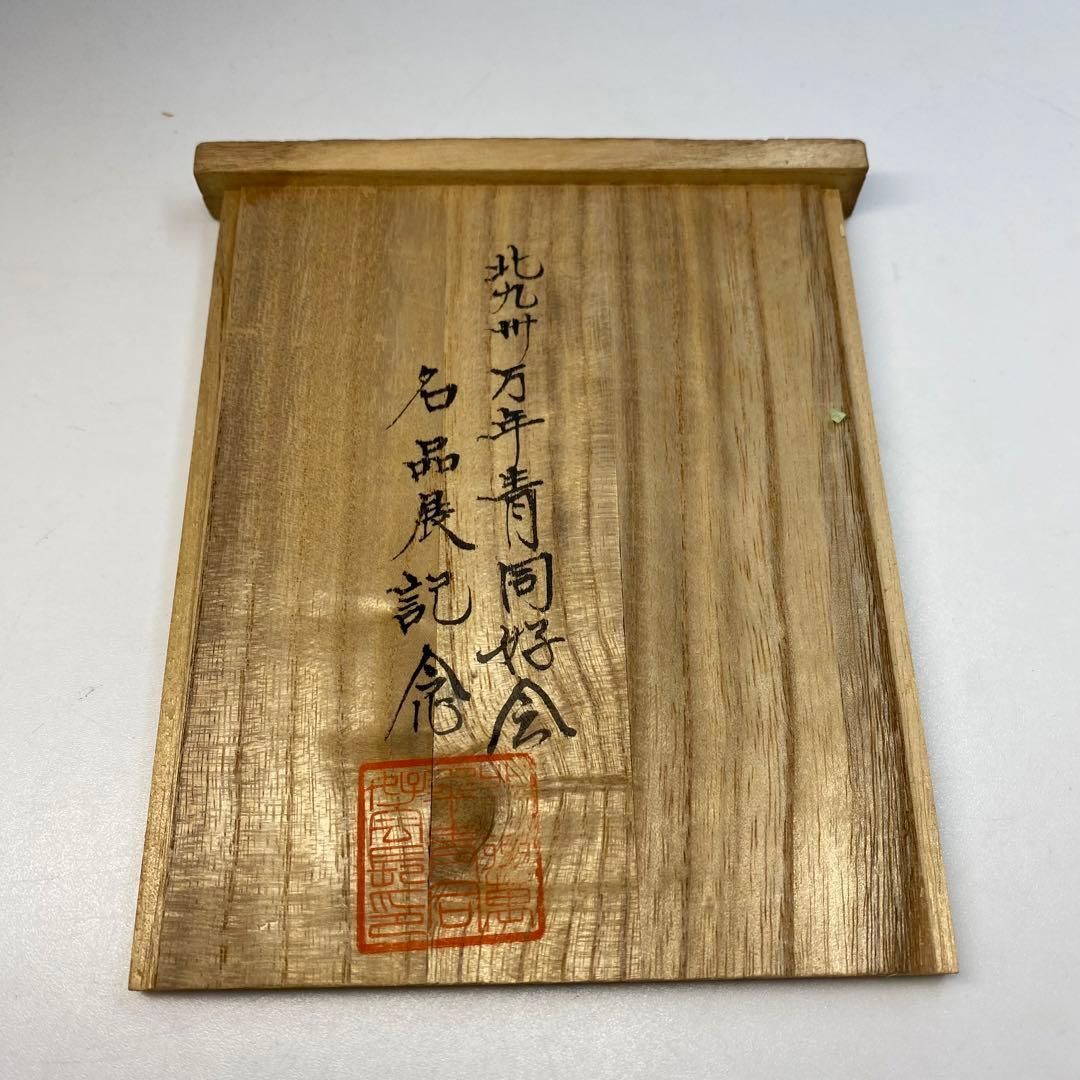 北九州万年青同好会
名品展記念